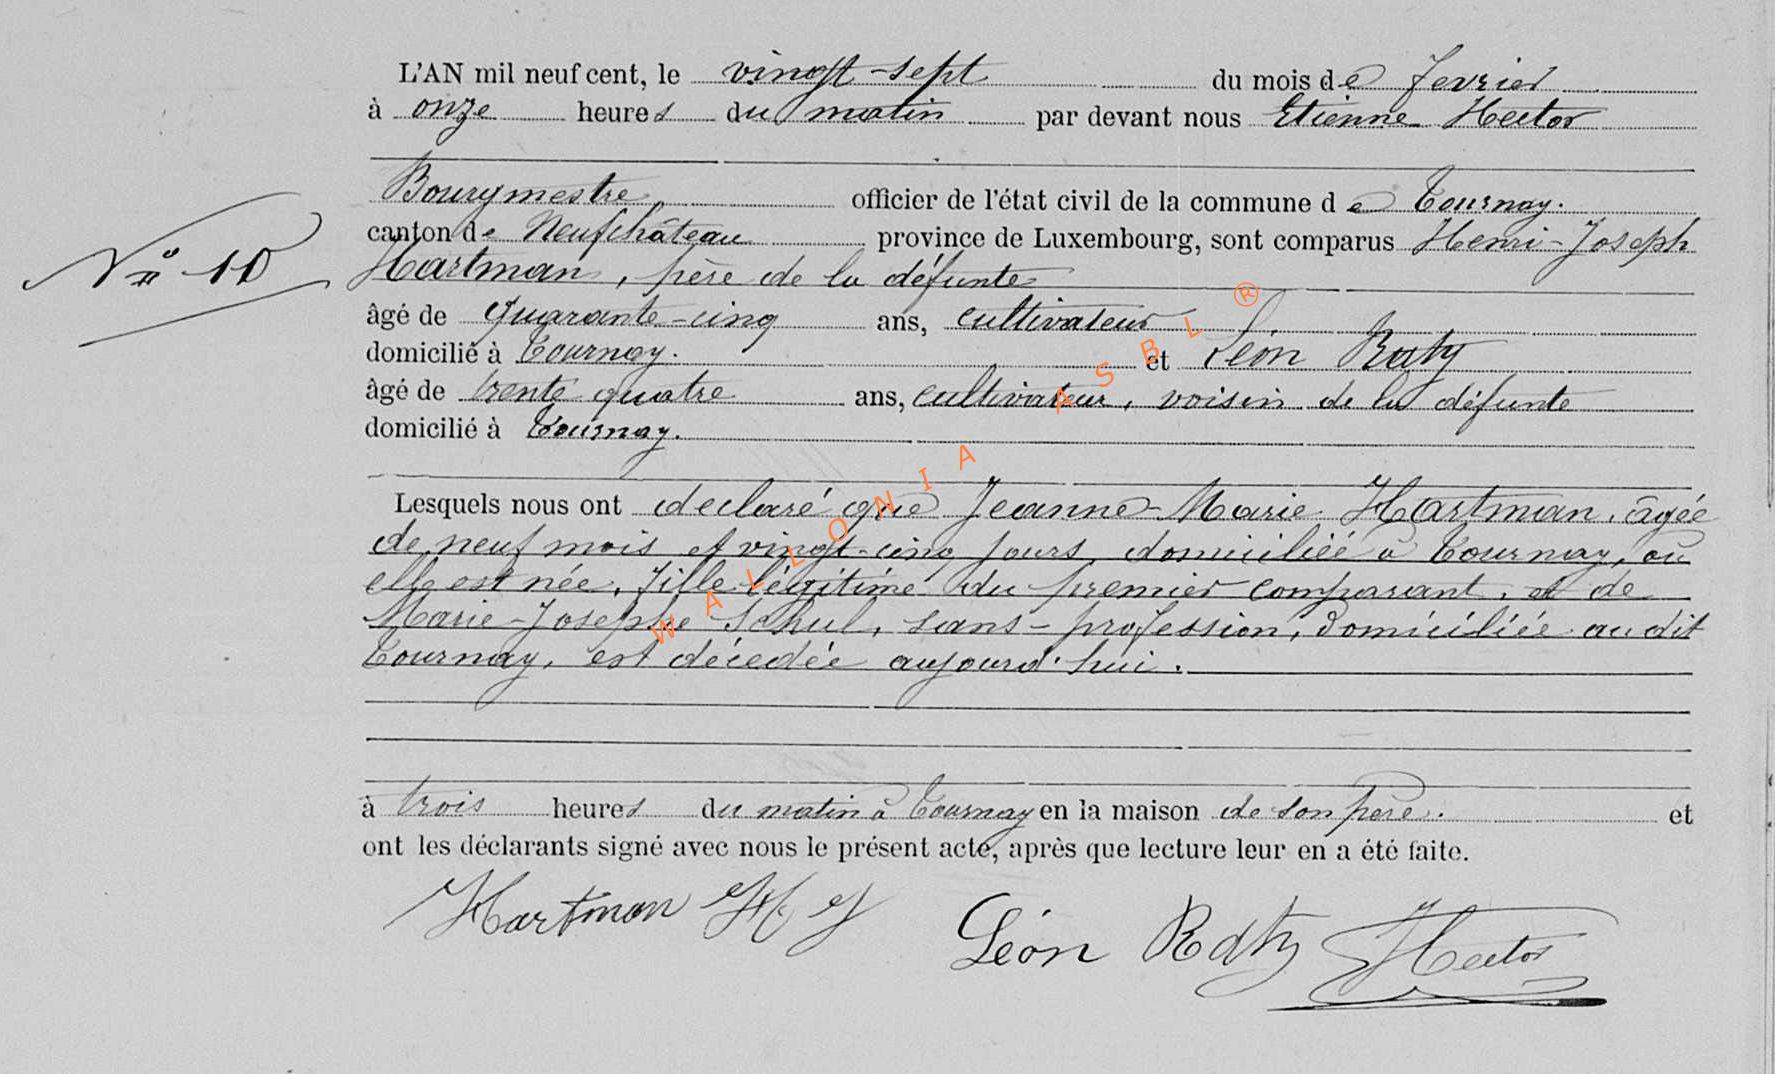 L'AN mil neuf cent, le vingt-sept du mois de fevrier
à onze heures du matin par devant nous Etienne Hector
Bourgmestre officier de l'état civil de la commune de Tournay.
canton de Neufchâteau province de Luxembourg, sont comparus Henri-Joseph
Nº 10
Hartman, père de la défunte
âgé de quarante-cinq ans, cultivateur
domicilié à Tournay. et Léon Raty
âgé de trente quatre ans, cultivateur, voisin de la défunte
domicilié à Tournay.
Lesquels nous ont declaré que Jeanne-Marie Hartman, âgée
de neuf mois et vingt-cinq jours, domiciliée à Tournay, où
elle est née, fille légitime du premier comparant, et de
Marie-Josephe Schul, sans-profession, domiciliée au dit
Tournay, est décedée aujourd'hui.
à trois heures du matin à Tournay en la maison de son père. et
ont les déclarants signé avec nous le présent acte, après que lecture leur en a été faite.
Hartman H J Léon Raty Hector
WALLONIA ASBL ®